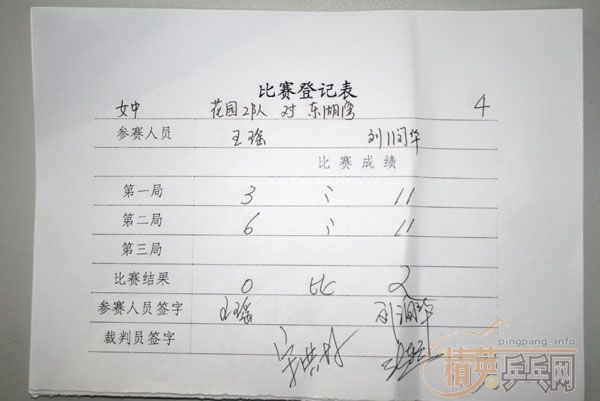 比赛登记表
女中 花园2队 对 东湖湾 4
参赛人员 王瑶 刘润华
比赛成绩
第一局 3 : 11
第二局 6 : 11
第三局
比赛结果 0 比 2
参赛人员签字 王瑶 刘润华
裁判员签字
pingpang.info
精英乒乓网